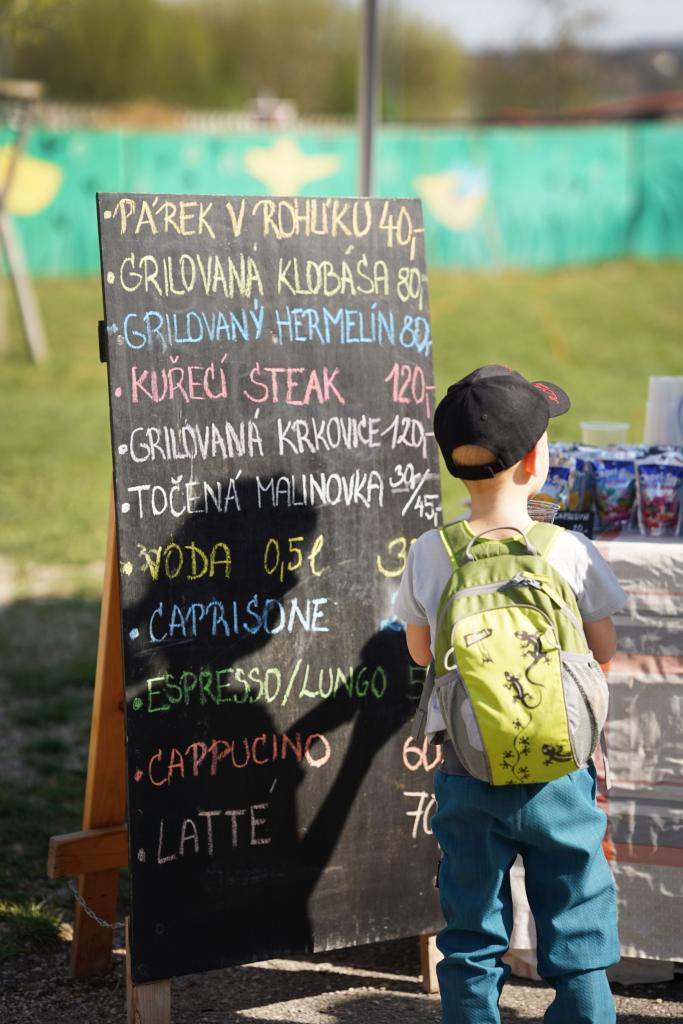 • PÁREK V ROHLÍKU 40,-
• GRILOVANÁ KLOBÁSA 80,-
• GRILOVANÝ HERMELÍN 80,-
• KUŘECÍ STEAK 120,-
• GRILOVANÁ KRKOVICE 120,-
• TOČENÁ MALINOVKA 30,-/45,-
• VODA 0,5l
• CAPRISONE
• ESPRESSO/LUNGO
• CAPPUCINO 60
• LATTÉ 70